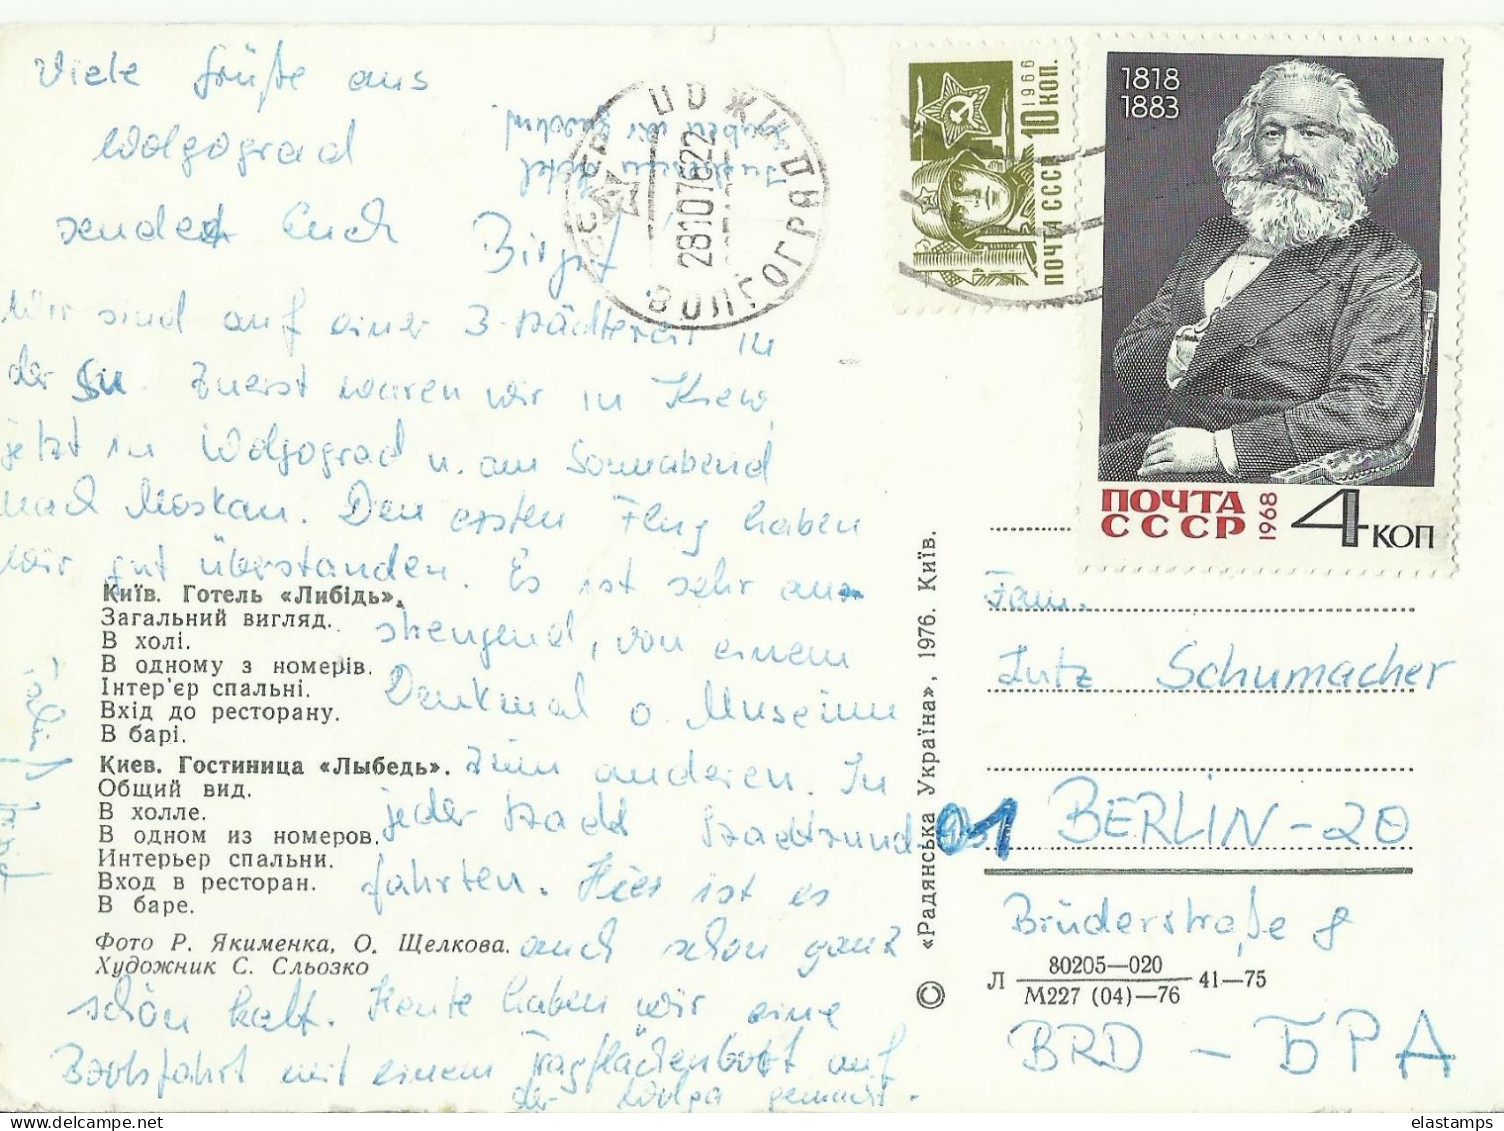 Viele Grüße aus
Wolgograd
sendet Euch Birgit.
Wir sind auf einer 3-Städtereise in
der SU. Zuerst waren wir in Kiew,
jetzt in Wolgograd u. am Sonnabend
nach Moskau. Den ersten Flug haben
wir gut überstanden. Es ist sehr an-
strengend, von einem
Denkmal o. Museum
zum anderen. In
jeder Stadt Stadtrund-
fahrten. Hier ist es
auch schon ganz
schön kalt. Heute haben wir eine
Bootsfahrt mit einem Tragflächenboot auf
der Wolga gemacht.
Київ. Готель «Либідь».
Загальний вигляд.
В холі.
В одному з номерів.
Інтер'єр спальні.
Вхід до ресторану.
В барі.
Киев. Гостиница «Лыбедь».
Общий вид.
В холле.
В одном из номеров.
Интерьер спальни.
Вход в ресторан.
В баре.
Фото Р. Якименка, О. Щелкова.
Художник С. Сльозко
haben wir
ВОЛГОГРАД
28107622
1966
10 КОП.
ПОЧТА СССР
1818
1883
ПОЧТА
СССР
1968
4 КОП
© «Радянська Україна», 1976. Київ.
Fam.
Lutz Schumacher
01
BERLIN-20
Brüderstraße 8
Л 80205—020
М227 (04)—76 41—75
BRD - БРД
elastamps